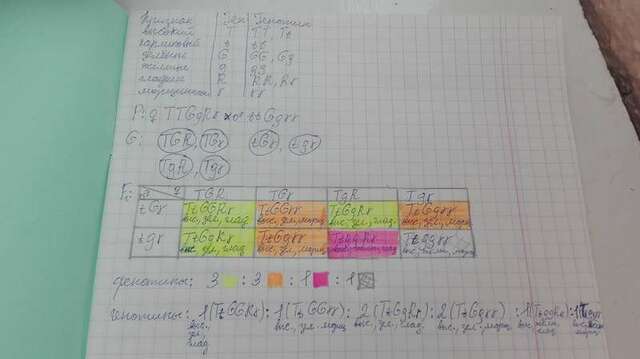 Признак Ген Генотип
высокий T TT, Tt
карликовый t tt
зелёные G GG, Gg
жёлтые g gg
гладкие R RR, Rr
морщинистые r rr
P: ♀ TTGgRr × ♂ ttGgrr
G: TGR, TGr tGr, tgr
TgR, Tgr
F₁: ♂ ♀ TGR TGr TgR Tgr
tGr TtGGRr TtGGrr TtGgRr TtGgrr
выс., зел., глад. выс., зел., морщ. выс., зел., глад. выс., зел., морщ.
tgr TtGgRr TtGgrr TtggRr Ttggrr
выс., зел., глад. выс., зел., морщ.
фенотипы: 3 : 3 : 1 : 1
генотипы: 1(TtGGRr) : 1(TtGGrr) : 2(TtGgRr) : 2(TtGgrr) : 1(TtggRr) : 1(Ttggrr)
выс., зел., глад. выс., зел., морщ. выс., зел., глад. выс., зел., морщ.